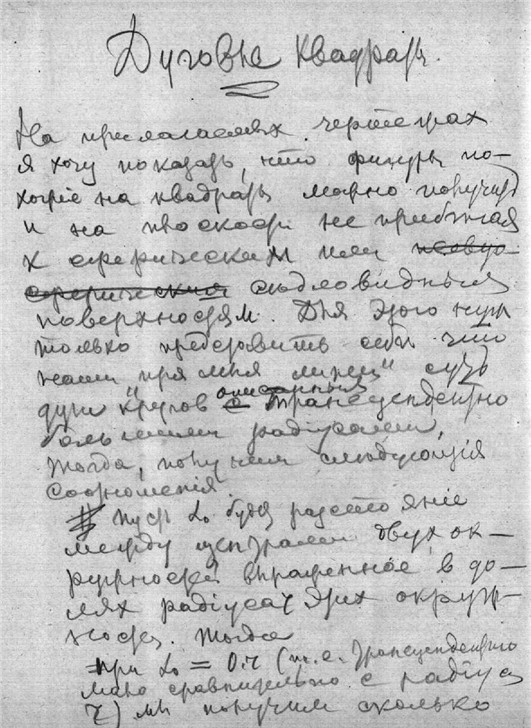 Дуговые квадраты.
На прилагаемых чертежах
я хочу показать, что фигуры по-
хожіе на квадраты можно получить
и на плоскости не прибѣгая
к сферическим или псевдо-
сферическим сѣдловидным
поверхностям. Для этого нужно
только представить себѣ что
наши "прямыя линіи" суть
дуги "кругов с описанных трансцендентно
большими радіусами,
тогда, получим слѣдующія
соотношенія.
Пусть L₀ будет разстояніе
между центрами двух ок-
ружностей выраженное в до-
лях радіуса r этих окруж-
ностей. Тогда
при L₀ = 0.r (т.е. трансцендентно
мало сравнительно с радіусом
r) мы получим сколько